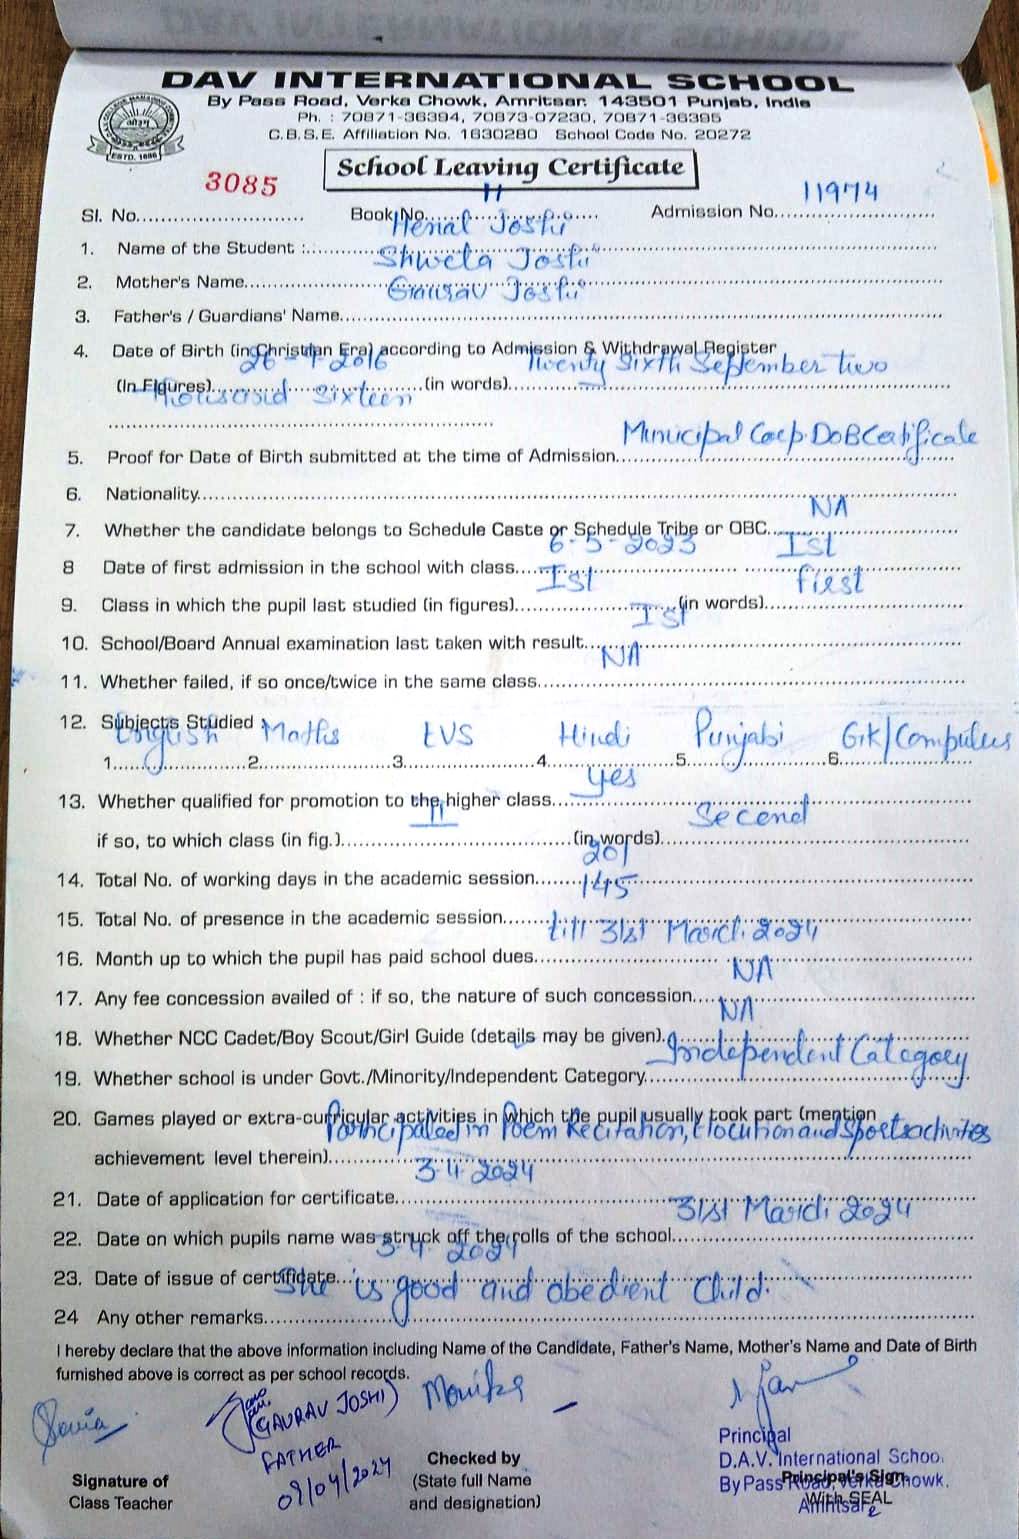 DAV INTERNATIONAL SCHOOL
By Pass Road, Verka Chowk, Amritsar. 143501 Punjab, India
Ph. : 70871-36394, 70873-07230, 70871-36395
C.B.S.E. Affiliation No. 1630280 School Code No. 20272
ESTD. 1886
School Leaving Certificate
3085
Sl. No. Book No. 11 Admission No. 11974
1. Name of the Student : Henal Joshi
2. Mother's Name Shweta Joshi
3. Father's / Guardians' Name Gaurav Joshi
4. Date of Birth (in Christian Era) according to Admission & Withdrawal Register
(In Figures) 26-9-2016 (in words) Twenty Sixth September two
Thousand Sixteen
5. Proof for Date of Birth submitted at the time of Admission Municipal Corp. DoB Certificate
6. Nationality
7. Whether the candidate belongs to Schedule Caste or Schedule Tribe or OBC NA
8 Date of first admission in the school with class 6-5-2023 Ist
9. Class in which the pupil last studied (in figures) Ist (in words) First
10. School/Board Annual examination last taken with result Ist
11. Whether failed, if so once/twice in the same class NA
12. Subjects Studied :
1. English 2. Maths 3. EVS 4. Hindi 5. Punjabi 6. G.K/Computers
13. Whether qualified for promotion to the higher class yes
if so, to which class (in fig.) II (in words) Second
14. Total No. of working days in the academic session 201
15. Total No. of presence in the academic session 145
16. Month up to which the pupil has paid school dues till 31st March. 2024
17. Any fee concession availed of : if so, the nature of such concession NA
18. Whether NCC Cadet/Boy Scout/Girl Guide (details may be given) NA
19. Whether school is under Govt./Minority/Independent Category Independent Category
20. Games played or extra-curricular activities in which the pupil usually took part (mention
achievement level therein) Participated in Poem Recitation, Elocution and Sports activities
21. Date of application for certificate 3-4-2024
22. Date on which pupils name was struck off the rolls of the school 31st March 2024
23. Date of issue of certificate 3-4-2024
24 Any other remarks She is good and obedient Child.
I hereby declare that the above information including Name of the Candidate, Father's Name, Mother's Name and Date of Birth
furnished above is correct as per school records.
Sonia
(GAURAV JOSHI)
FATHER
09/04/2024
Monika
Signature of
Class Teacher
Checked by
(State full Name
and designation)
Principal
D.A.V. International School
By Pass Road, Verka Chowk.
Amritsar
Principal's Sign.
With SEAL